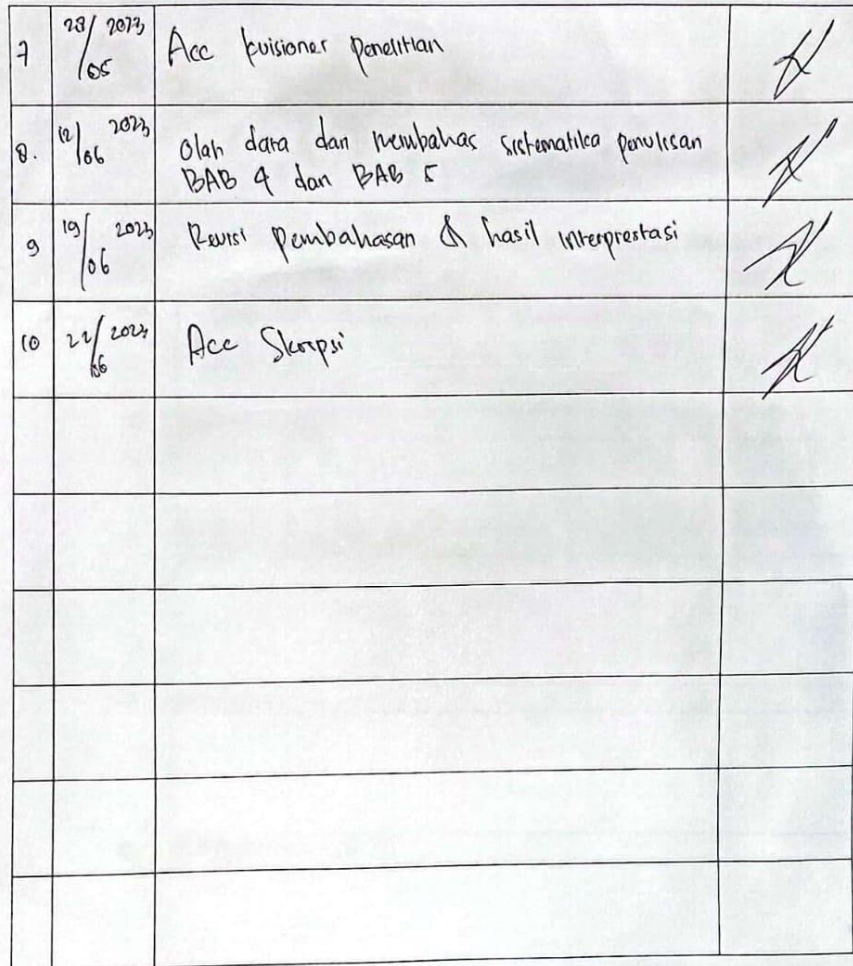 7 28/05 2023 Acc kuisioner penelitian
8. 12/06 2023 Olah data dan membahas sistematika penulisan
BAB 4 dan BAB 5
9 19/06 2023 Revisi pembahasan & hasil interprestasi
10 22/06 Acc Skripsi